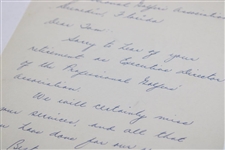 Dunedin, Florida
Dear Tom
Sorry to hear of your
retirement as Executive Director
of the Professional Golfers
association.
We will certainly miss
your services and all that
you have done for our